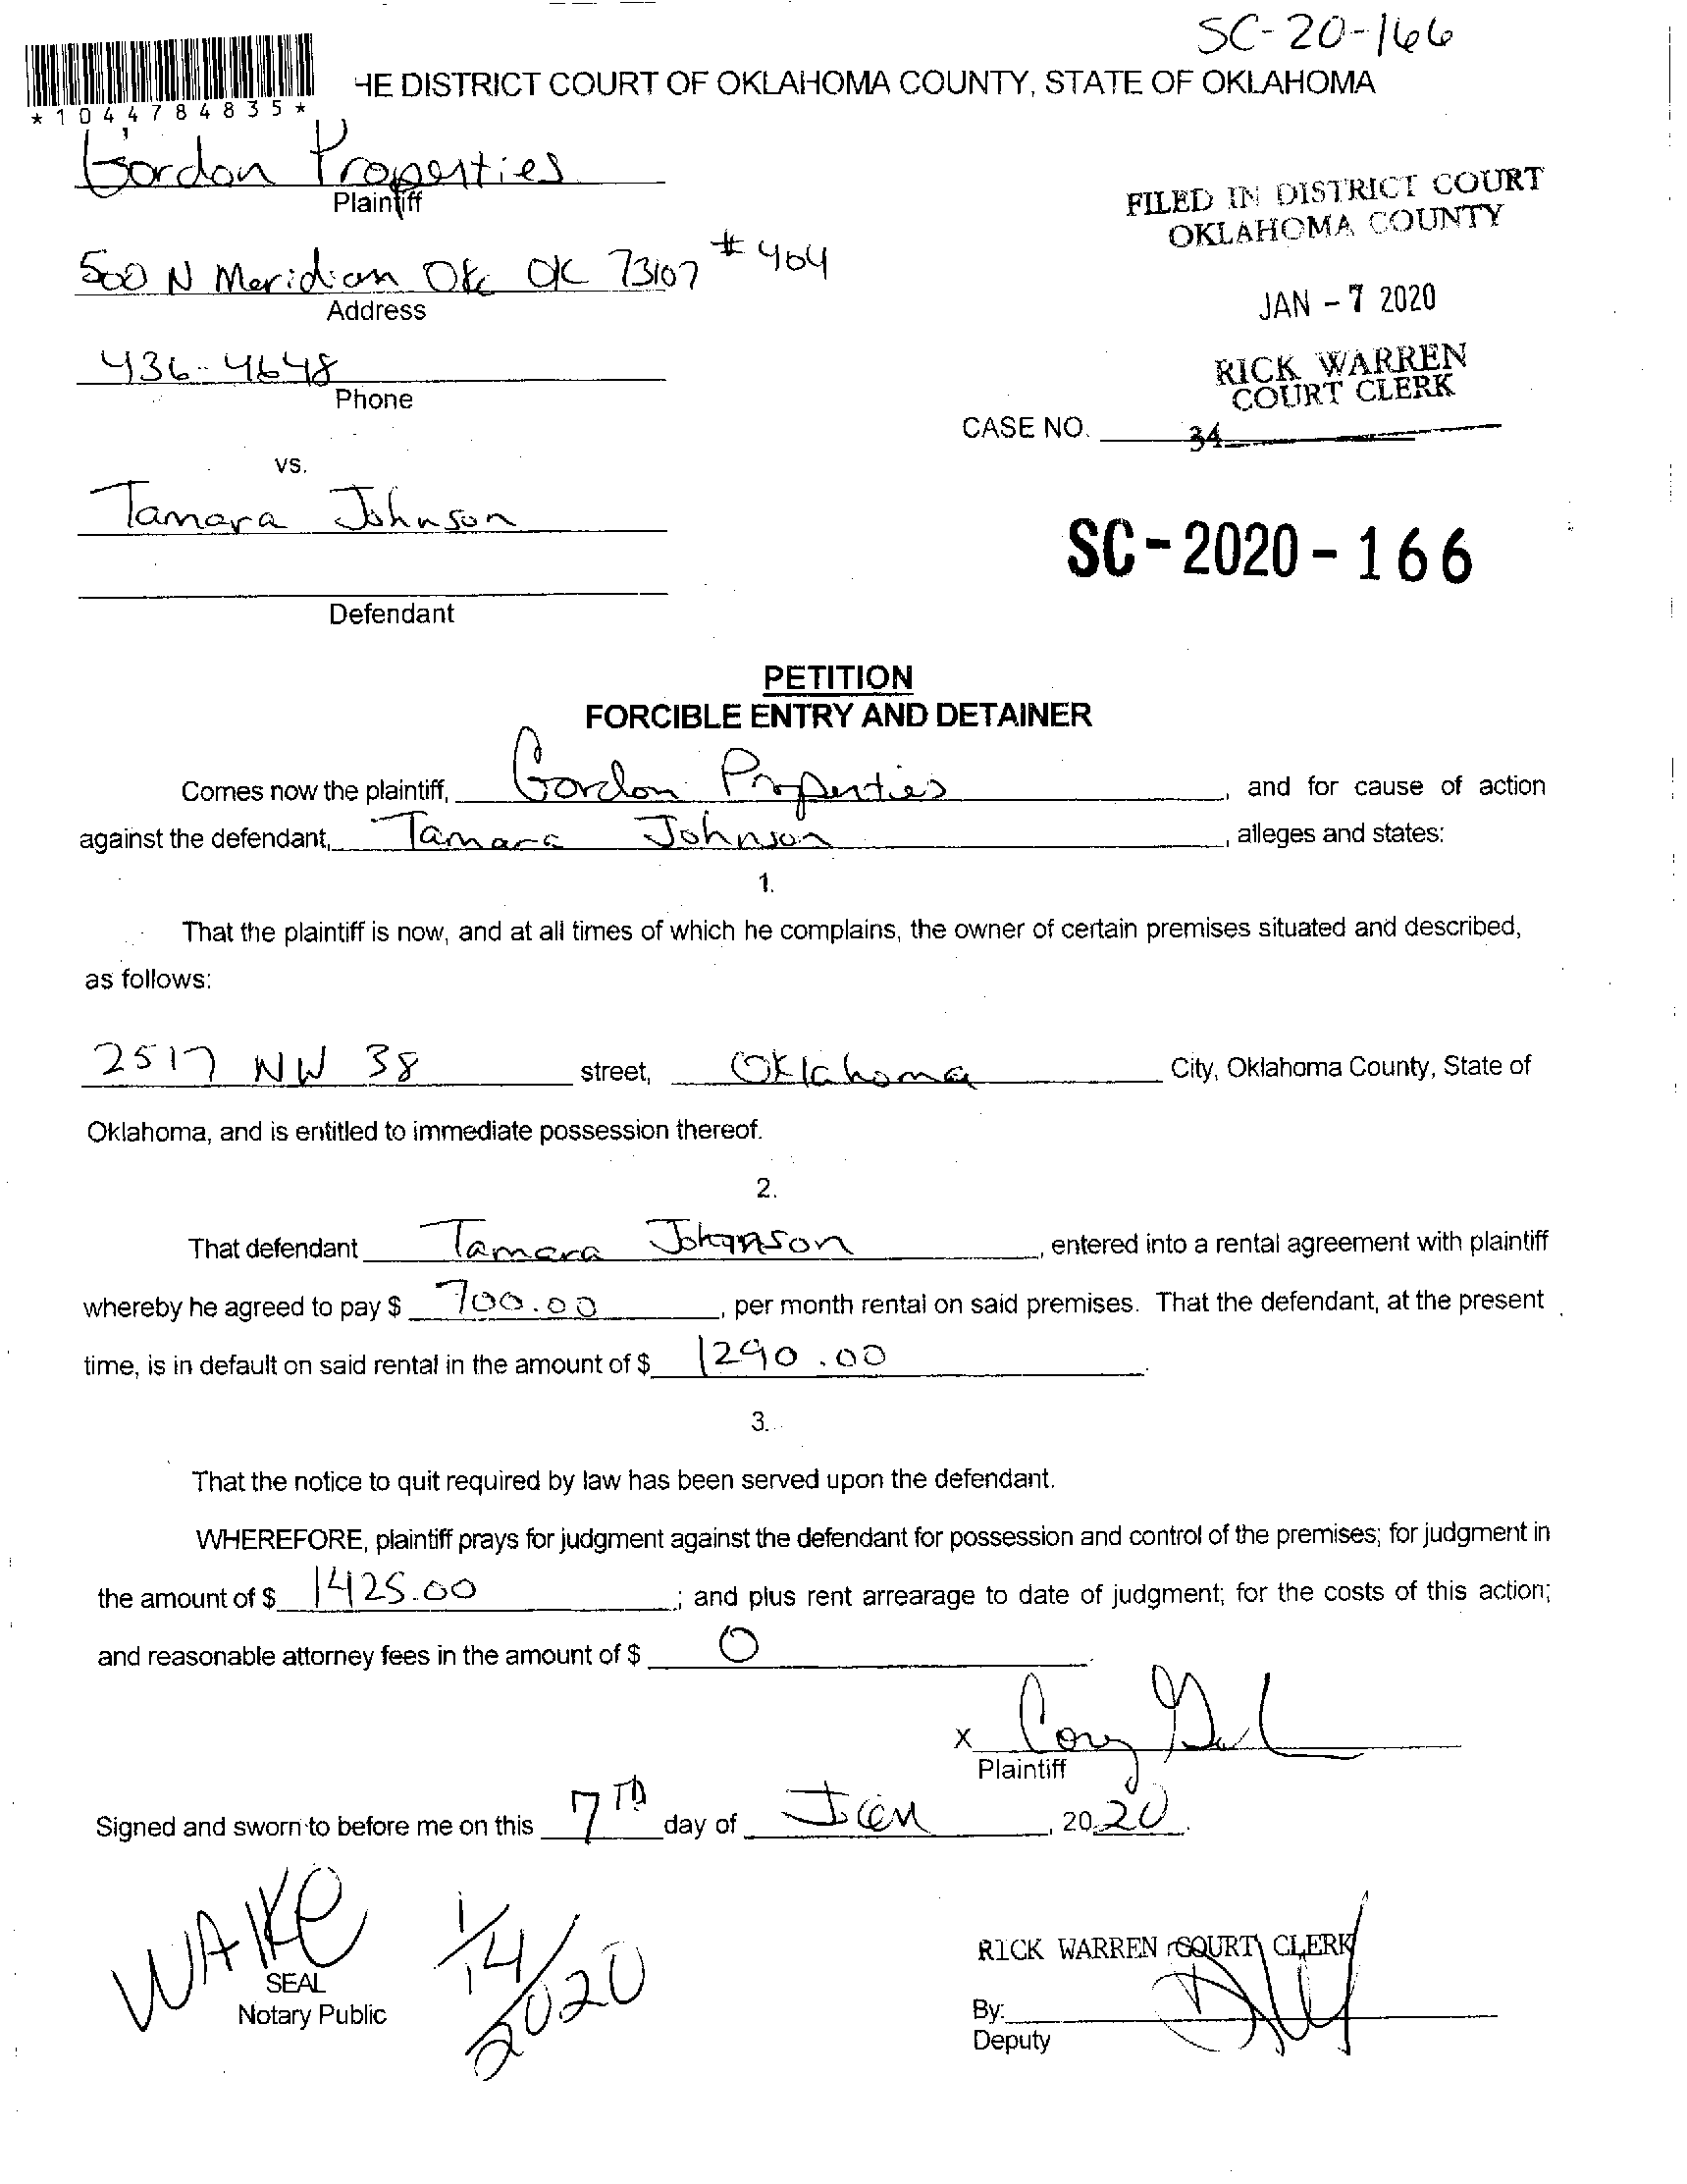 SC-20-166
HE DISTRICT COURT OF OKLAHOMA COUNTY, STATE OF OKLAHOMA
*1044784835*
Gordon Properties
Plaintiff
FILED IN DISTRICT COURT
OKLAHOMA COUNTY
500 N Meridian Okc OK 73107 #404
Address
JAN - 7 2020
436-4648
Phone
RICK WARREN
COURT CLERK
CASE NO.
34
vs.
Tamara Johnson
SC-2020-166
Defendant
PETITION
FORCIBLE ENTRY AND DETAINER
Comes now the plaintiff, Gordon Properties, and for cause of action
against the defendant, Tamara Johnson, alleges and states:
1.
That the plaintiff is now, and at all times of which he complains, the owner of certain premises situated and described,
as follows:
2517 NW 38 street, Oklahoma City, Oklahoma County, State of
Oklahoma, and is entitled to immediate possession thereof.
2.
That defendant Tamara Johnson, entered into a rental agreement with plaintiff
whereby he agreed to pay $ 700.00, per month rental on said premises. That the defendant, at the present
time, is in default on said rental in the amount of $ 1290.00.
3.
That the notice to quit required by law has been served upon the defendant.
WHEREFORE, plaintiff prays for judgment against the defendant for possession and control of the premises; for judgment in
the amount of $ 1425.00; and plus rent arrearage to date of judgment; for the costs of this action;
and reasonable attorney fees in the amount of $ 0.
x Cory
Plaintiff
Signed and sworn to before me on this 7TH day of Jan, 2020.
WAIKE
1/14/2020
SEAL
Notary Public
RICK WARREN COURT CLERK
By:
Deputy